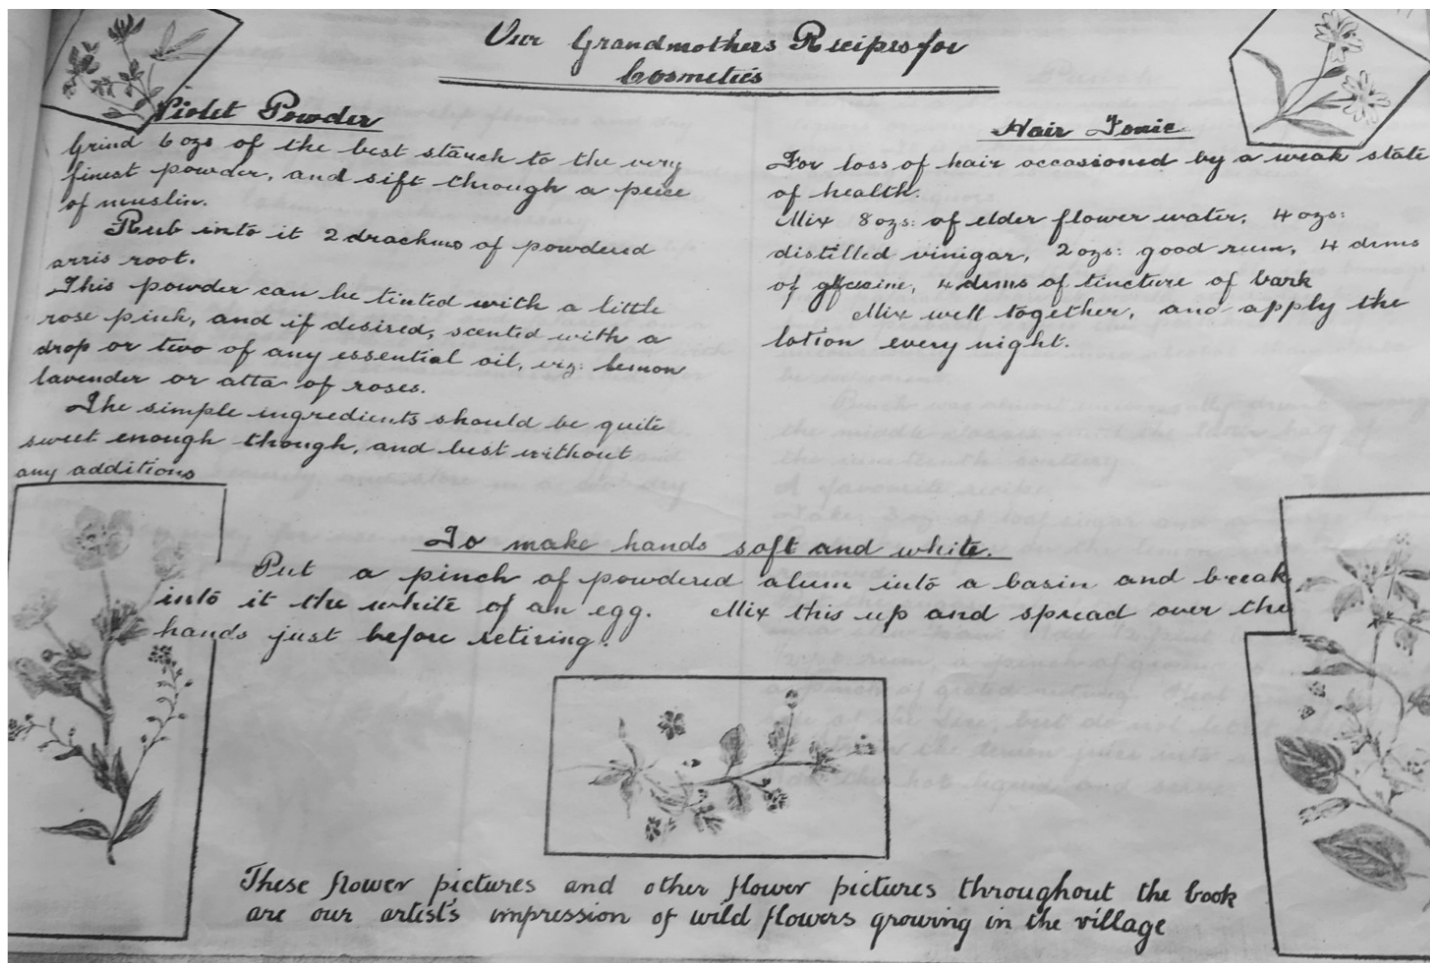 Our Grandmothers Recipes for
Cosmetics
Violet Powder
Grind 6 ozs of the best starch to the very
finest powder, and sift through a peice
of muslin.
Rub into it 2 drachms of powdered
arris root.
This powder can be tinted with a little
rose pink, and if desired, scented with a
drop or two of any essential oil, viz: lemon
lavender or atta of roses.
The simple ingredients should be quite
sweet enough though, and best without
any additions
Hair Tonic
For loss of hair occasioned by a weak state
of health.
Mix 8 ozs: of elder flower water, 4 ozs:
distilled vinigar, 2 ozs: good rum, 4 drms
of glyserine, 4 drms of tincture of bark
Mix well together, and apply the
lotion every night.
To make hands soft and white.
Put a pinch of powdered alum into a basin and break
into it the white of an egg. Mix this up and spread over the
hands just before retiring.
These flower pictures and other flower pictures throughout the book
are our artist's impression of wild flowers growing in the village